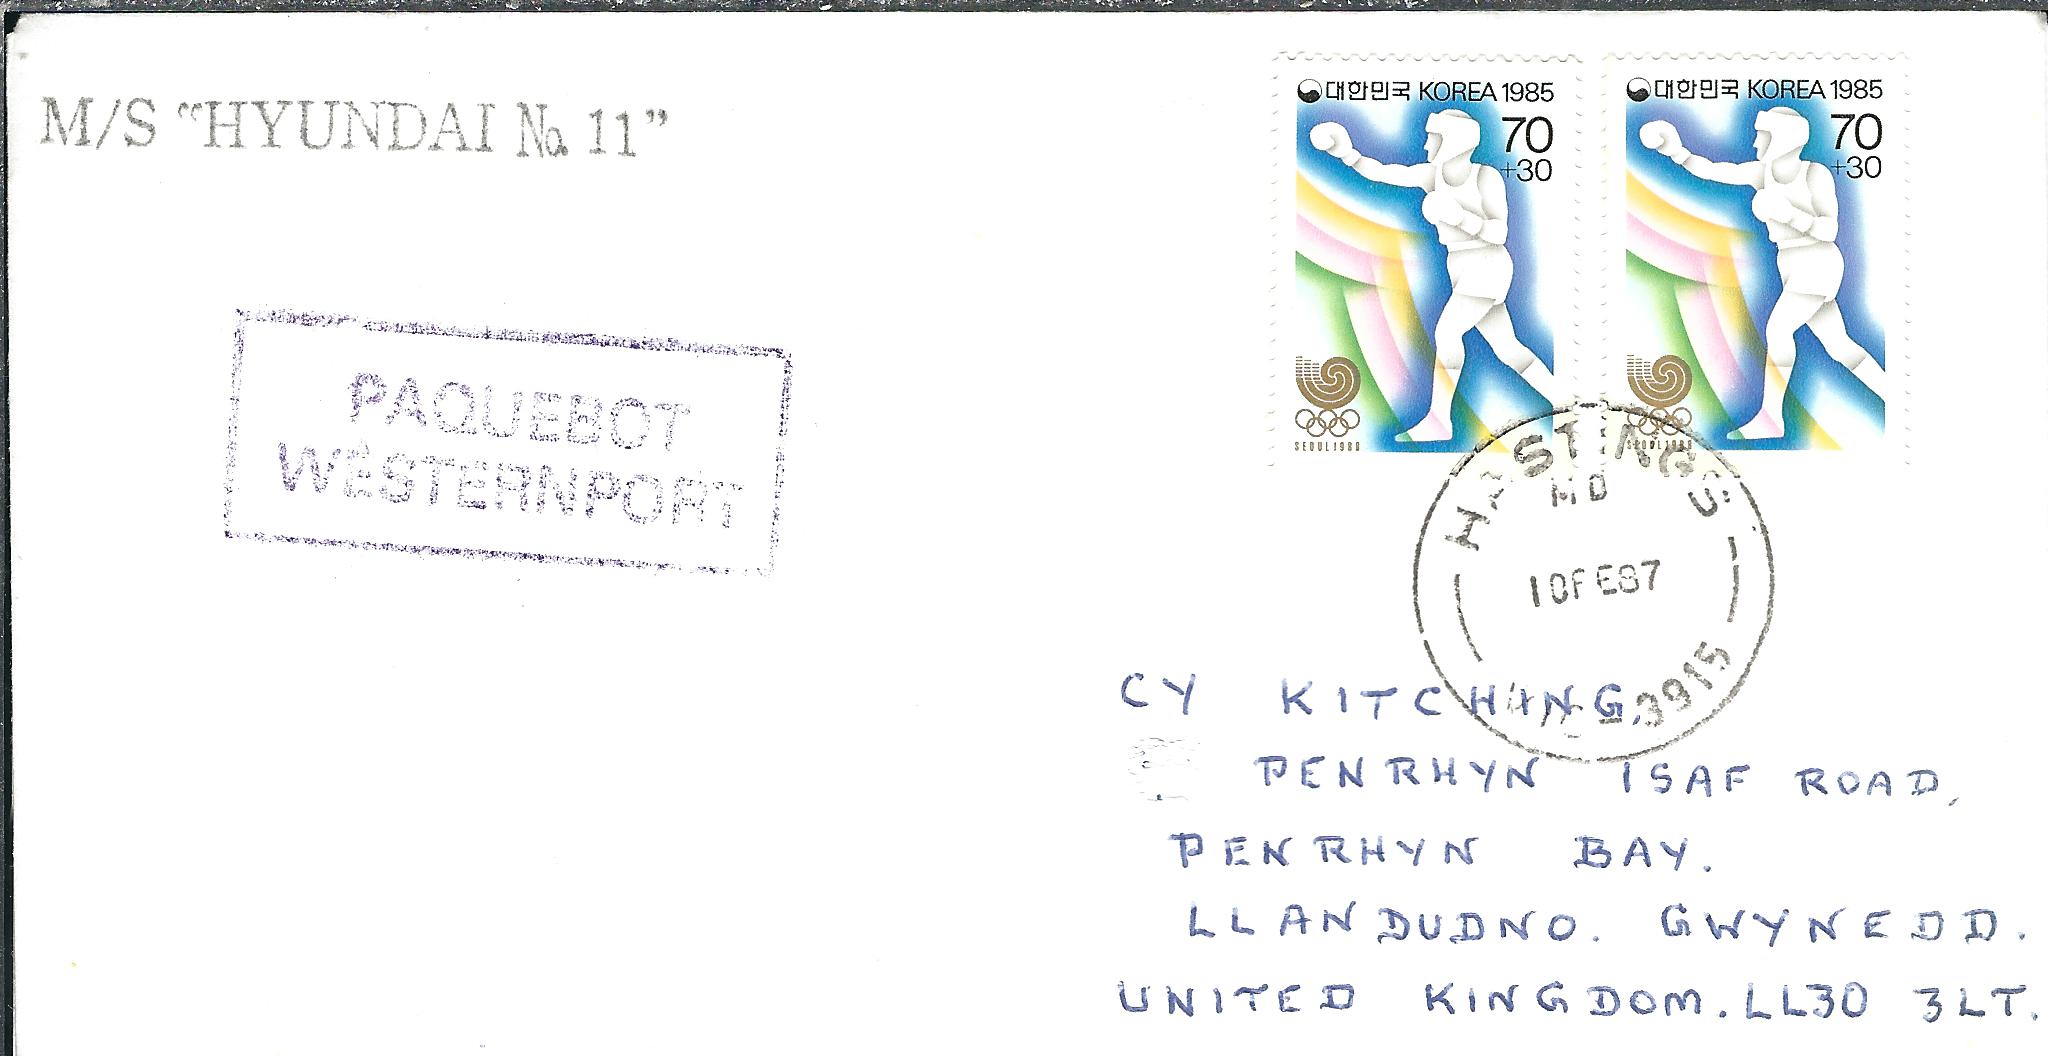 M/S "HYUNDAI No. 11"
대한민국 KOREA 1985
70
+30
SEOUL 1988
대한민국 KOREA 1985
70
+30
SEOUL 1988
PAQUEBOT
WESTERNPORT
HASTINGS
MD
10FE87
3915
CY KITCHING,
PENRHYN ISAF ROAD,
PENRHYN BAY.
LLANDUDNO. GWYNEDD.
UNITED KINGDOM. LL30 3LT.